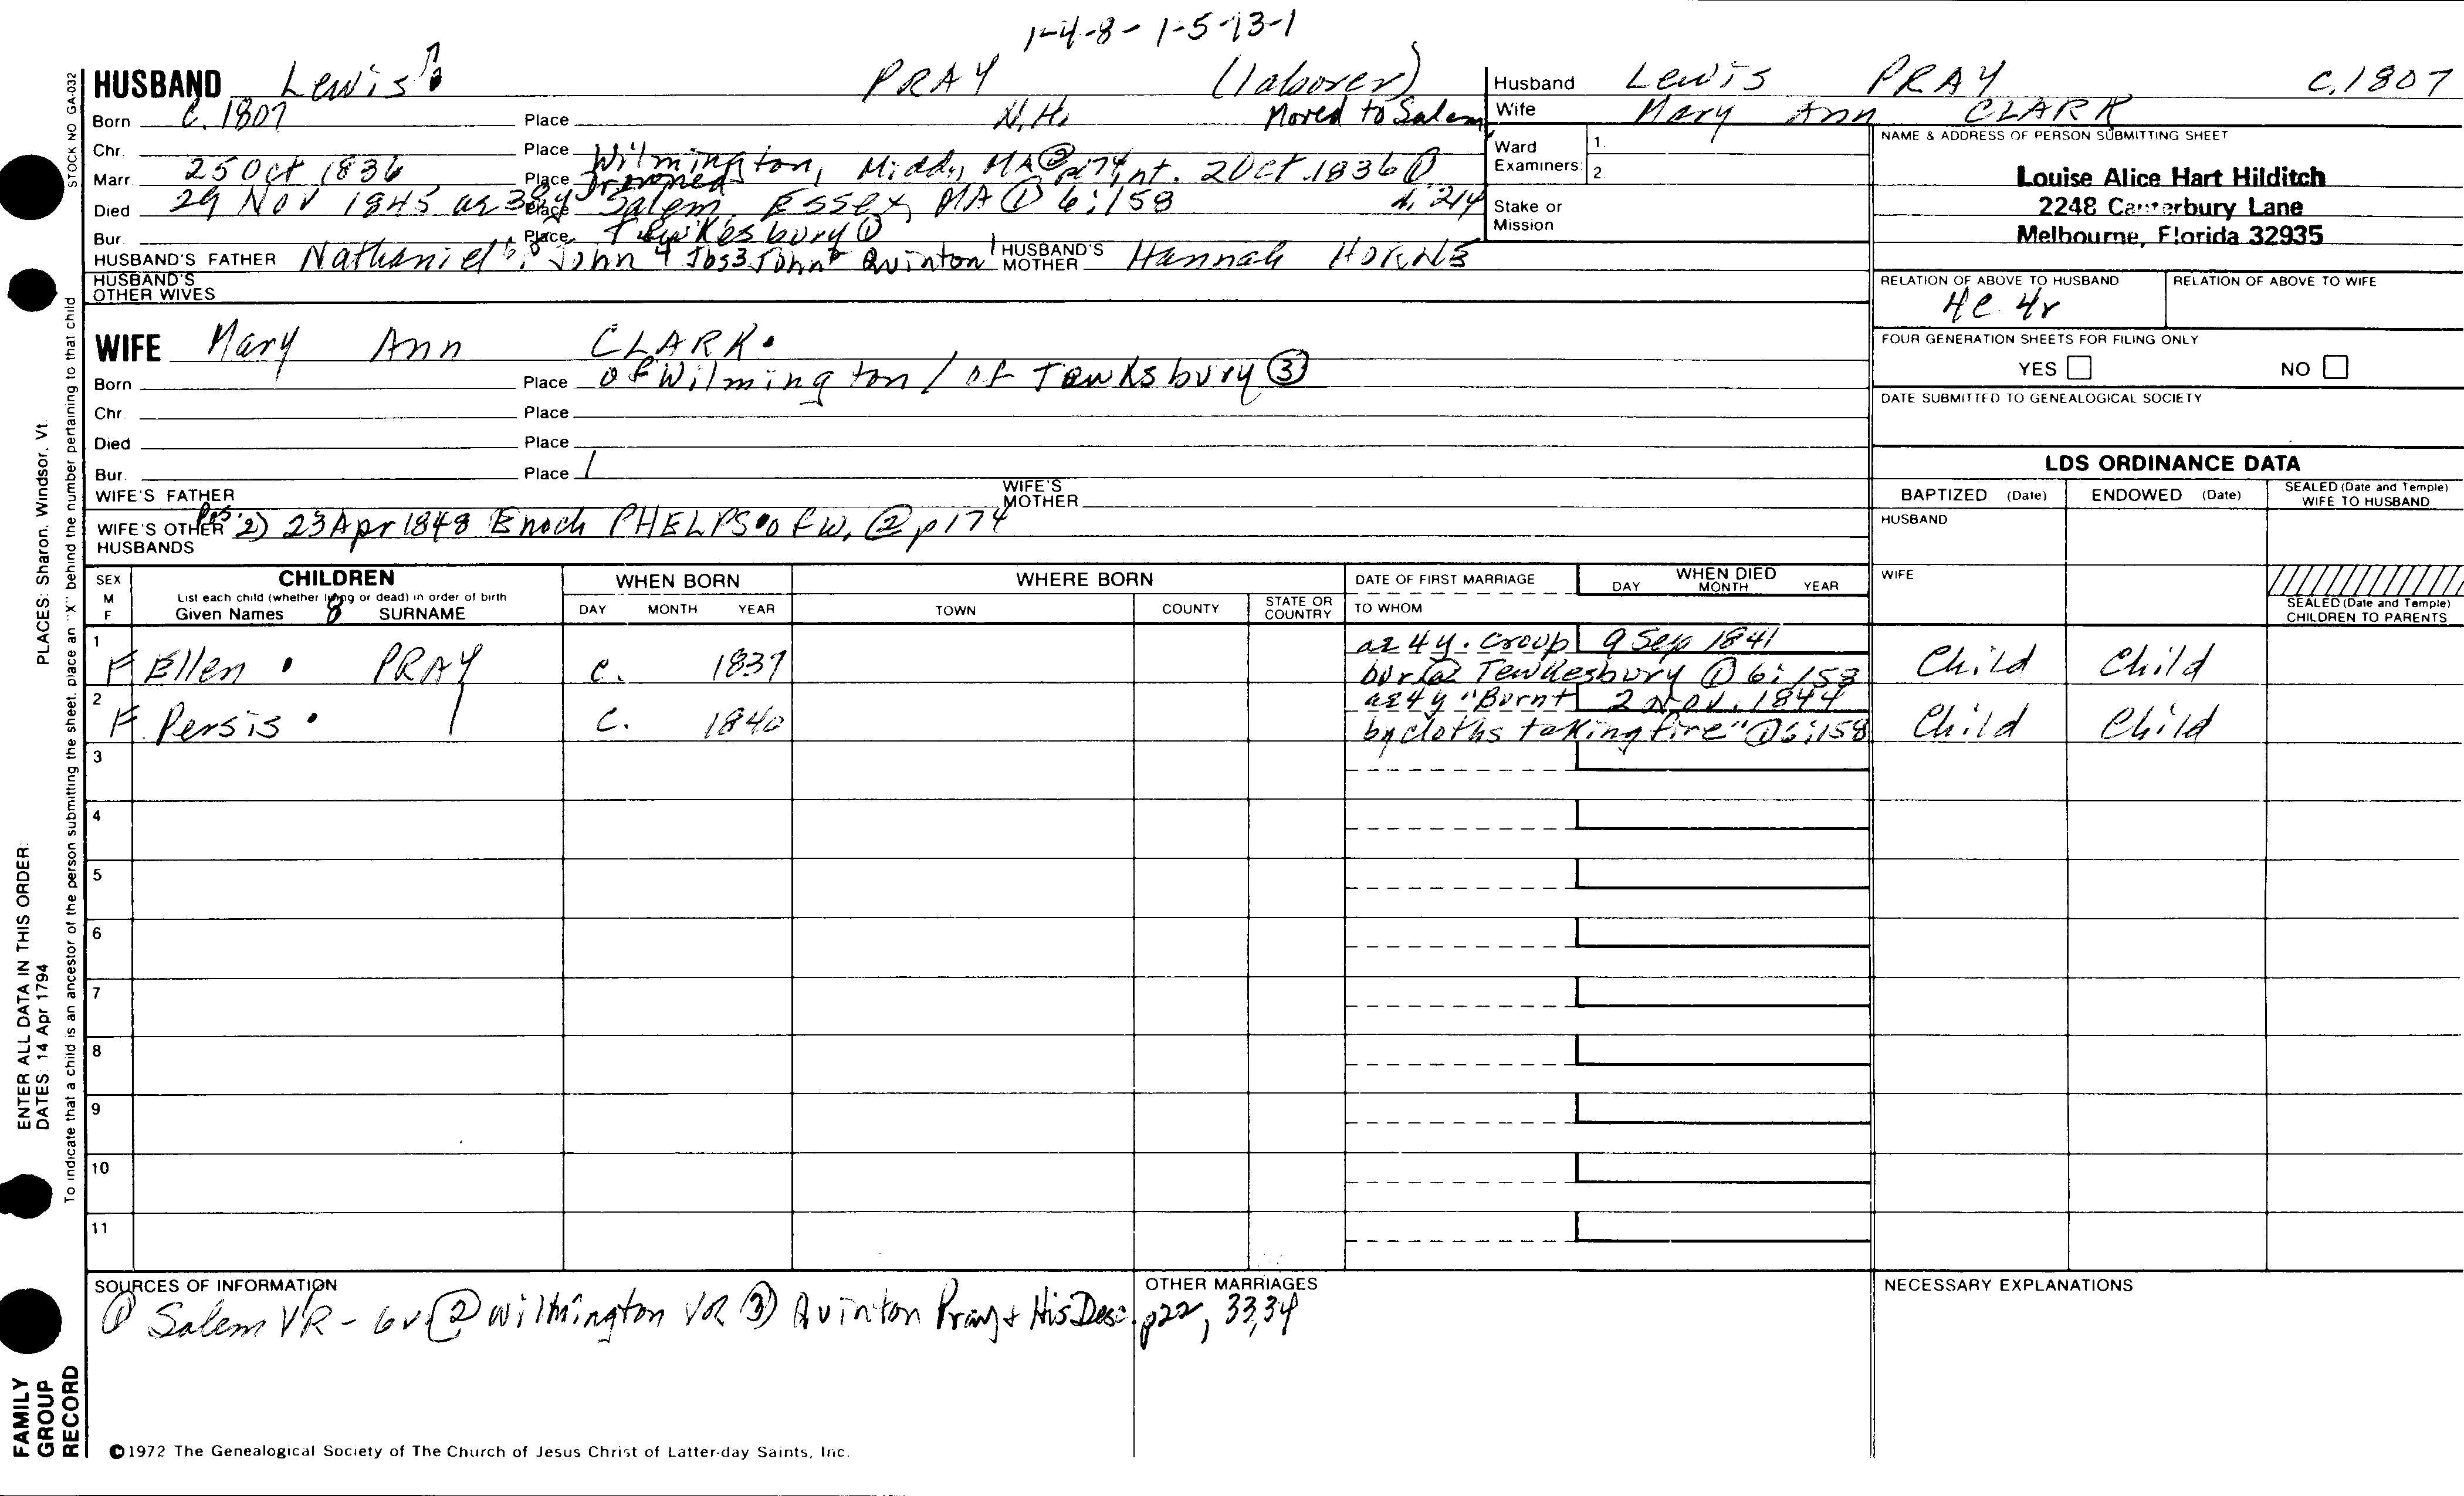 1-4-8-1-5-13-1
HUSBAND Lewis PRAY (laborer)
Born C. 1807 Place N.H. Moved to Salem
Chr. Place
Marr. 25 Oct 1836 Place Wilmington, Midd, MA ② p174, int. 2 Oct. 1836 ①
Died 29 Nov 1845 Place Drowned Salem, Essex, MA ① 6:158 4:214
Bur. Place Tewkesbury ①
HUSBAND'S FATHER Nathaniel John 4 Jos 3 John 2 Quinton 1 HUSBAND'S MOTHER Hannah HORNE
HUSBAND'S OTHER WIVES
WIFE Mary Ann CLARK.
Born Place of Wilmington / of Tewksbury ③
Chr. Place
Died Place
Bur. Place
WIFE'S FATHER WIFE'S MOTHER
WIFE'S OTHER HUSBANDS 2) 23 Apr 1848 Enoch PHELPS of W. ② p174
Husband Lewis PRAY C. 1807
Wife Mary Ann CLARK
Ward Examiners: 1. 2
Stake or Mission
NAME & ADDRESS OF PERSON SUBMITTING SHEET
Louise Alice Hart Hilditch
2248 Canterbury Lane
Melbourne, Florida 32935
RELATION OF ABOVE TO HUSBAND RELATION OF ABOVE TO WIFE
4c 4r
FOUR GENERATION SHEETS FOR FILING ONLY
YES NO
DATE SUBMITTED TO GENEALOGICAL SOCIETY
LDS ORDINANCE DATA
BAPTIZED (Date) ENDOWED (Date) SEALED (Date and Temple) WIFE TO HUSBAND
HUSBAND
WIFE
SEALED (Date and Temple) CHILDREN TO PARENTS
SEX M F
CHILDREN
List each child (whether living or dead) in order of birth
Given Names SURNAME
WHEN BORN
DAY MONTH YEAR
WHERE BORN
TOWN COUNTY STATE OR COUNTRY
DATE OF FIRST MARRIAGE
TO WHOM
WHEN DIED
DAY MONTH YEAR
1 F Ellen PRAY C. 1837 ae 4 y. Croup 9 Sep 1841
bur @ Tewkesbury ① 6:153 Child Child
2 F Persis C. 1840 ae 4 y "Burnt 2 Nov. 1844
by cloths taking fire" ① 6:158 Child Child
3
4
5
6
7
8
9
10
11
SOURCES OF INFORMATION
① Salem VR - 6v ② Wilmington VR ③ Quinton Pray & His Desc. p22, 33,34
OTHER MARRIAGES
NECESSARY EXPLANATIONS
©1972 The Genealogical Society of The Church of Jesus Christ of Latter-day Saints, Inc.
STOCK NO GA-032
To indicate that a child is an ancestor of the person submitting the sheet, place an "X" behind the number pertaining to that child
ENTER ALL DATA IN THIS ORDER:
DATES: 14 Apr 1794 PLACES: Sharon, Windsor, Vt.
FAMILY
GROUP
RECORD